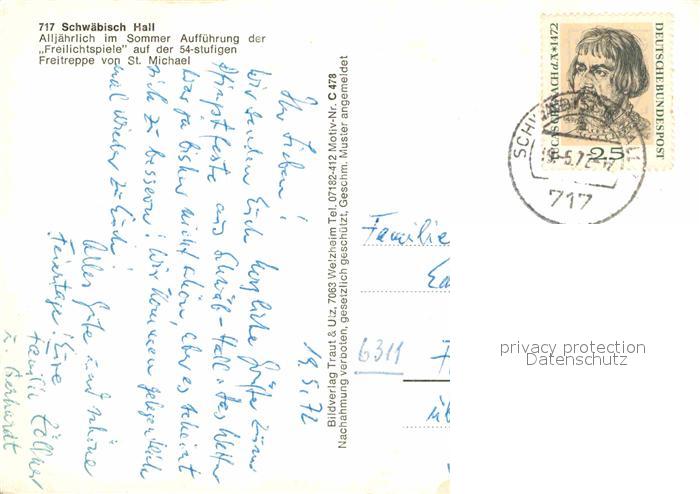 717 Schwäbisch Hall
Alljährlich im Sommer Aufführung der
„Freilichtspiele" auf der 54-stufigen
Freitreppe von St. Michael
19.5.72
Ihr Lieben!
Wir senden Euch herzliche Grüße zum
Pfingstfeste aus Schwäb.-Hall. Das Wetter
war ja bisher nicht schön, aber es scheint
sich zu bessern! Wir kommen gelegentlich
mal wieder zu Euch!
Alles Gute und schöne
Feiertage! Eure
Familie Zöllner
u. Gerhardt
Bildverlag Traut & Ulz, 7063 Welzheim Tel. 07182-412 Motiv-Nr. C 478
Nachahmung verboten, gesetzlich geschützt, Geschm. Muster angemeldet
LUCAS CRANACH D.Ä. * 1472
DEUTSCHE BUNDESPOST
25
717
Familie
6311
privacy protection
Datenschutz